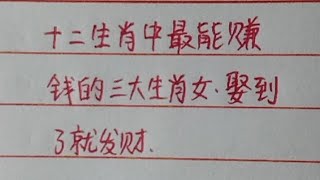 十二生肖中最能赚
钱的三大生肖女.娶到
了就发财.